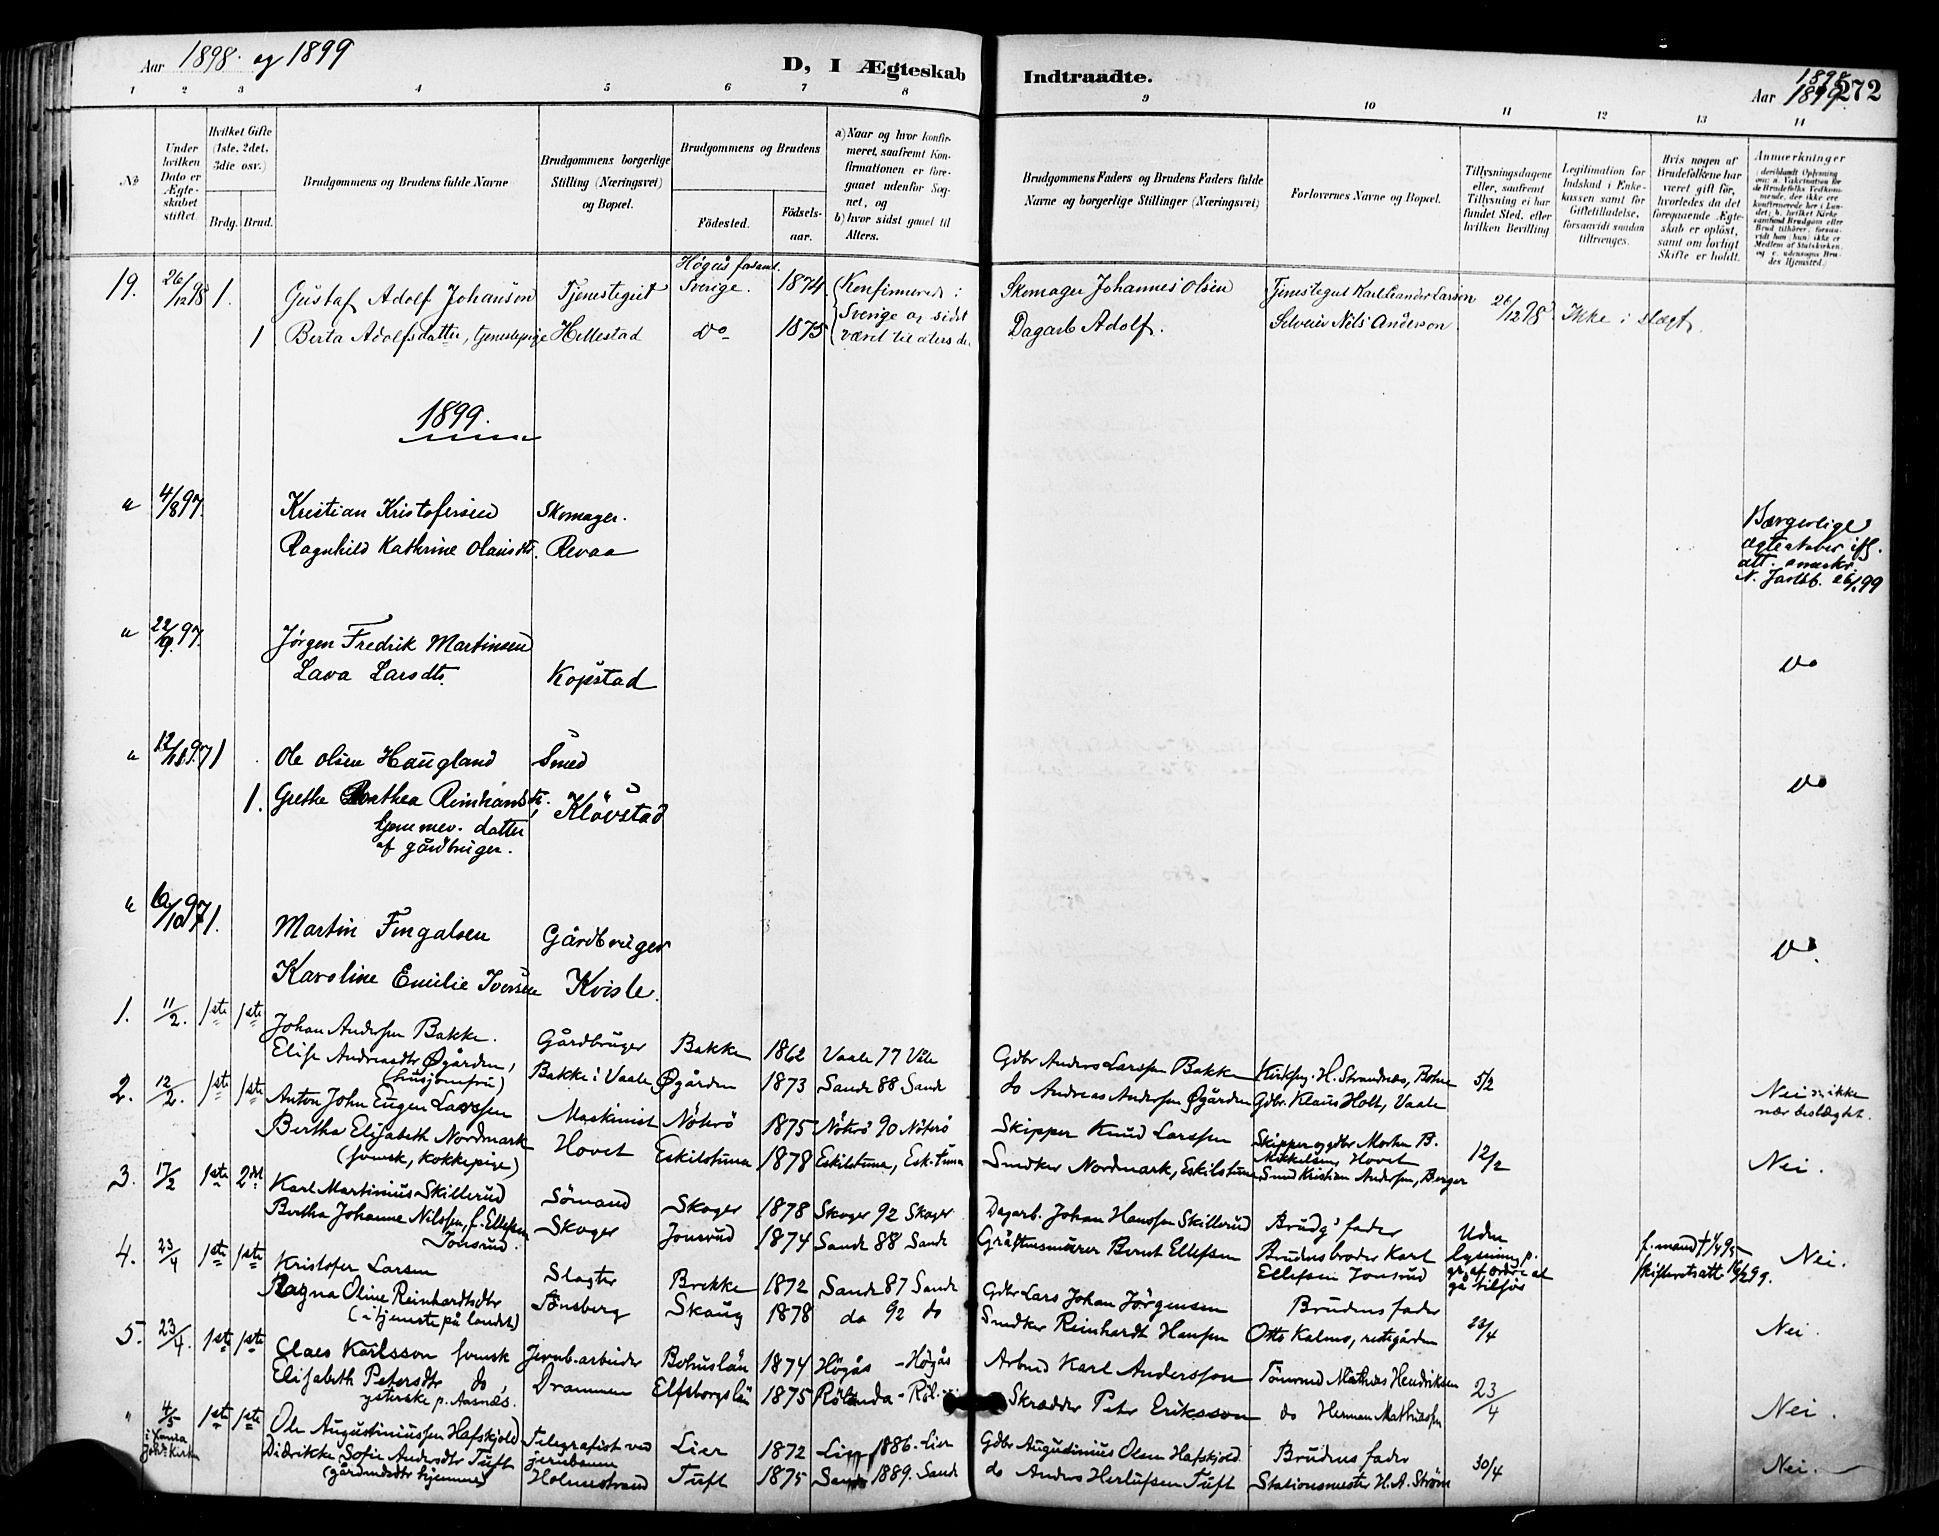 Aar 1898 og 1899
D, I Ægteskab Indtraadte.
1898
Aar 1899. 272
1 2 3 4 5 6 7 8 9 10 11 12 13 14
No
Under hvilken Dato er Ægteskabet stiftet.
Hvilket Gifte (1ste, 2det, 3die osv.)
Brdg. Brud.
Brudgommens og Brudens fulde Navne
Brudgommens borgerlige Stilling (Næringsvei) og Bopæl.
Brudgommens og Brudens
Födested. Födselsaar.
a) Naar og hvor konfirmeret, saafremt Konfirmationen er foregaaet udenfor Sognet, og
b) hvor sidst gaaet til Alters.
Brudgommens Faders og Brudens Faders fulde Navne og borgerlige Stillinger (Næringsvei)
Forlovernes Navne og Bopæl.
Tillysningsdagene eller, saafremt Tillysning ei har fundet Sted, efter hvilken Bevilling.
Legitimation for Indskud i Enkekassen samt for Giftetilladelse, forsaavidt saadan tiltrænges.
Hvis nogen af Brudefolkene har været gift för, hvorledes da det foregaaende Ægteskab er oplöst, samt om lovligt Skifte er holdt.
Anmærkninger
19. 26/12 98 1. Gustaf Adolf Johansen Tjenestegut Högås forsaml. Sverige. 1874 Konfirmerede i Skomager Johannes Olsen Tjenestegut Karl Leander Larsen 26/12 98 Ikke i slægt.
1 Berta Adolfsdatter, tjenestepige Hillestad Do 1875 Sverige og sidst været til alters do Dagarb Adolf. Selveier Nils Anderson
1899.
" 4/8 97. Kristian Kristofersen Skomager. Borgerlige
Ragnhild Kathrine Olausdt. Revaa ægteskaber ifl. att.
N. Jarlsb. 99
" 22/9. 97. Jörgen Fredrik Martinsen
Lava Larsdt. Kopstad Do
" 12/ 97 1 Ole Olsen Haugland Smed
1. Grethe Dorthea Reinhardsdt. Klövstad Do
hjemmev. datter
af gårdbruger.
" 6/10 97 1. Martin Fingalsen Gårdbruger Do.
Karoline Emilie Iversen Kvisle.
1. 11/2. 1ste 1ste Johan Andersen Bakke. Gårdbruger Bakke 1862 Vaale 77 Vaale Gdbr Anders Larssen Bakke Kirksg. H. Strandnæs, Bohne 5/2
Elise Andreasdtr Øgården, Bakke i Vaale Øgården 1873 Sande 88 Sande do Andreas Andersen Øgården Gdbr. Klaus Holt, Vaale Nei ikke
(husjomfru) nær beslægtet.
2. 12/2. 1ste 1ste Anton John Eugen Larssen Maskinist Nötterö 1875 Nötterö 90 Nötterö Skipper Knud Larssen Skipper og gdbr Morten B. 12/2
Bertha Elisabeth Nordmark Hovet Eskilstuna 1878 Eskilstuna, Esk.tuna Smdker Nordmark, Eskilstuna Mikkelsen, Hovet Nei.
(svensk, kokkepige) Smd Kristian Andersen, Berger
3. 17/2 1ste 2det Karl Martinius Skillerud Sömand Skoger 1878 Skoger 92 Skoger Dagarb. Johan Hanssen Skillerud Brudgs fader Uden
Bertha Johanne Nilssen, f. Ellefsen Skoger Jonsrud 1874 Sande 88 Sande Gråftusmurer Bernt Ellefsen Brudens broder Karl lysning p. f. mand † 1/4 95
Jonsrud. Ellefsen Jonsrud gr. af ordre at skifteretsatt. 16/2 99. Nei.
gå tilsjös
4. 23/4 1ste 1ste Kristofer Larsen Slagter Brekke 1872 Sande 87 Sande Gdbr Lars Johan Jörgensen Brudens fader
Ragna Oline Reinhardtsdtr Tönsberg Skaug 1878 do 92 do Smdker Reinhardt Hansen Otto Kalmo, 23/4
(i tjeneste på landet) Nei.
5. 23/4. 1ste 1ste Claes Karlsson svensk Jernb.arbeider Bohuslän 1874 Högås - Högås Arbmd Karl Andersson Tömrmd Mathias Hendriksen 23/4
Elisabeth Petersdtr do, Drammen Elfsborgslän 1875 Rölanda - Röl. Skrædder Peter Eriksson do Herman Mathiassen
ysterske p. Aasnæs. Nei.
" 4/5 1ste 1ste Ole Augustiniussen Hafskjold Telegrafist ved Lier 1872 Lier 1886. Lier Gdbr Augustinius Olsen Hafskjold Brudens fader
Didrikke Sofie Andersdtr Tuft jernbanen Tuft 1875 Sande 1889. Sande do Anders Herlufsen Tuft Stationsmester H. A. Ström 30/4
(gårdmdsdtr hjemme) Holmestrand Nei.